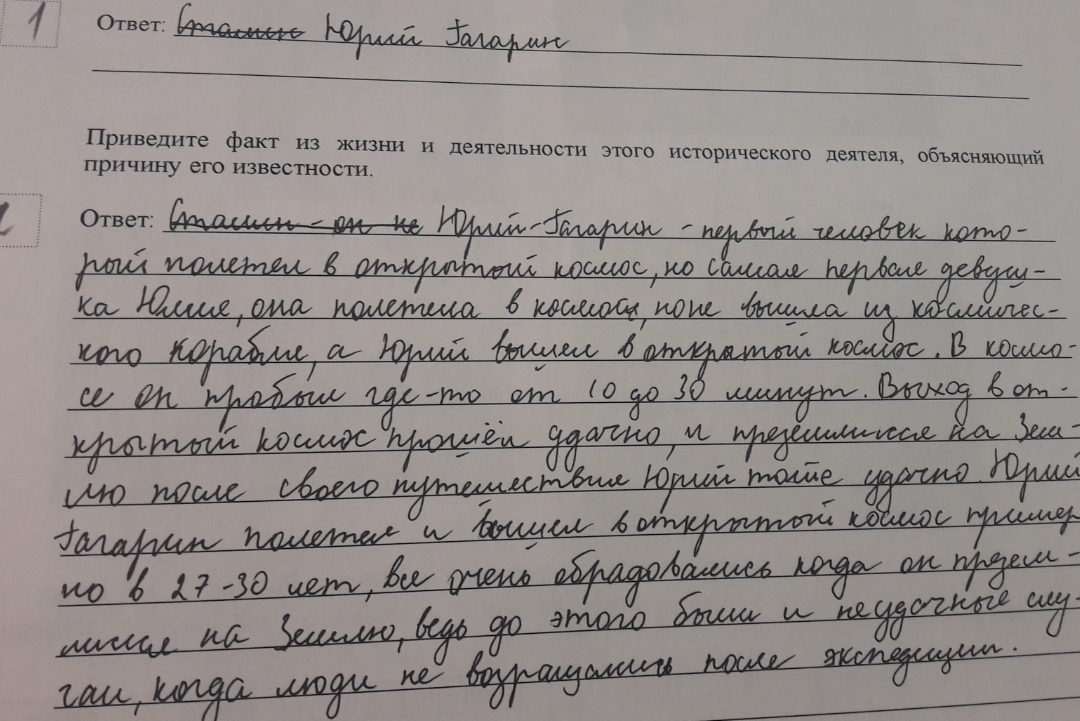 1
Ответ: Сталин Юрий Гагарин
Приведите факт из жизни и деятельности этого исторического деятеля, объясняющий
причину его известности.
Ответ: Сталин - он не Юрий-Гагарин - первый человек кото-
рый полетел в открытый космос, но самая первая девуш-
ка Юлия, она полетела в космос, но не вышла из космичес-
кого корабля, а Юрий вышел в открытый космос. В космо-
се он пробыл где-то от 10 до 30 минут. Выход в от-
крытый космос прошёл удачно, и преземлился на Зем-
лю после своего путешествия Юрий тоже удачно. Юрий
Гагарин полетел и вышел в открытый космос пример
но в 27-30 лет, все очень обрадовались когда он презем-
лился на Землю, ведь до этого были и неудачные слу-
гаи, когда люди не возращались после экспедиции.